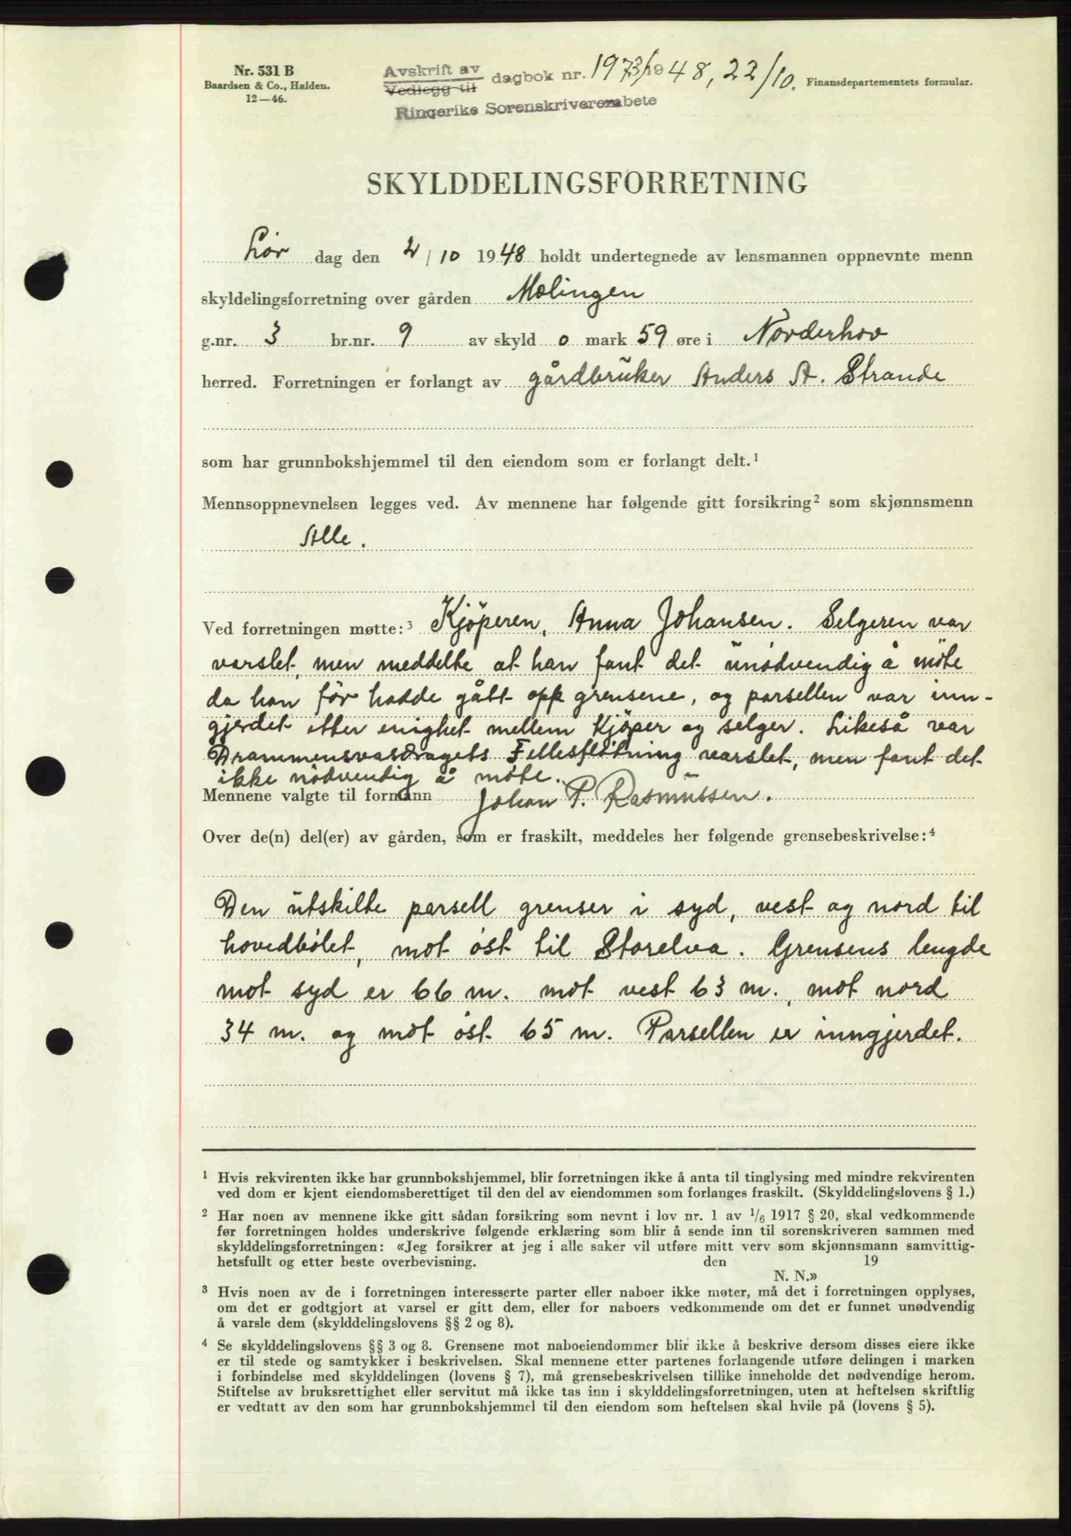 Nr. 531 B
Baardsen & Co., Halden.
12—46.
Avskrift av
Vedlegg til
dagbok nr. 1973/1948, 22/10.
Ringerike Sorenskriverembete
Finansdepartementets formular.
SKYLDDELINGSFORRETNING
Lør dag den 2/10 1948 holdt undertegnede av lensmannen oppnevnte menn
skyldelingsforretning over gården Molingen
g.nr. 3 br.nr. 9 av skyld 0 mark 59 øre i Norderhov
herred. Forretningen er forlangt av gårdbruker Anders A. Strande
som har grunnbokshjemmel til den eiendom som er forlangt delt.¹
Mennsoppnevnelsen legges ved. Av mennene har følgende gitt forsikring² som skjønnsmenn
Alle.
Ved forretningen møtte:³ Kjöperen, Anna Johansen. Selgeren var
varslet, men meddelte at han fant det unödvendig å möte
da han för hadde gått opp grensene, og parsellen var inn-
gjerdet etter enighet mellem Kjöper og selger. Likeså var
Drammensvasdragets Fellesflötning varslet, men fant det
ikke nödvendig å möte.
Mennene valgte til formann Johan P. Rasmussen.
Over de(n) del(er) av gården, som er fraskilt, meddeles her følgende grensebeskrivelse:⁴
Den utskilte parsell grenser i syd, vest og nord til
hovedbölet, mot öst til Storelva. Grensens lengde
mot syd er 66 m. mot vest 63 m., mot nord
34 m. og mot öst 65 m. Parsellen er inngjerdet.
¹ Hvis rekvirenten ikke har grunnbokshjemmel, blir forretningen ikke å anta til tinglysing med mindre rekvirenten
ved dom er kjent eiendomsberettiget til den del av eiendommen som forlanges fraskilt. (Skylddelingslovens § 1.)
² Har noen av mennene ikke gitt sådan forsikring som nevnt i lov nr. 1 av 1/6 1917 § 20, skal vedkommende
før forretningen holdes underskrive følgende erklæring som blir å sende inn til sorenskriveren sammen med
skylddelingsforretningen: «Jeg forsikrer at jeg i alle saker vil utføre mitt verv som skjønnsmann samvittig-
hetsfullt og etter beste overbevisning. den 19
N. N.»
³ Hvis noen av de i forretningen interesserte parter eller naboer ikke møter, må det i forretningen opplyses,
om det er godtgjort at varsel er gitt dem, eller for naboers vedkommende om det er funnet unødvendig
å varsle dem (skylddelingslovens §§ 2 og 8).
⁴ Se skylddelingslovens §§ 3 og 8. Grensene mot naboeiendommer blir ikke å beskrive dersom disses eiere ikke
er til stede og samtykker i beskrivelsen. Skal mennene etter partenes forlangende utføre delingen i marken
i forbindelse med skylddelingen (lovens § 7), må grensebeskrivelsen tillike inneholde det nødvendige herom.
Stiftelse av bruksrettighet eller servitut må ikke tas inn i skylddelingsforretningen, uten at heftelsen skriftlig
er vedtatt av den som har grunnbokshjemmel til den eiendom som heftelsen skal hvile på (lovens § 5).